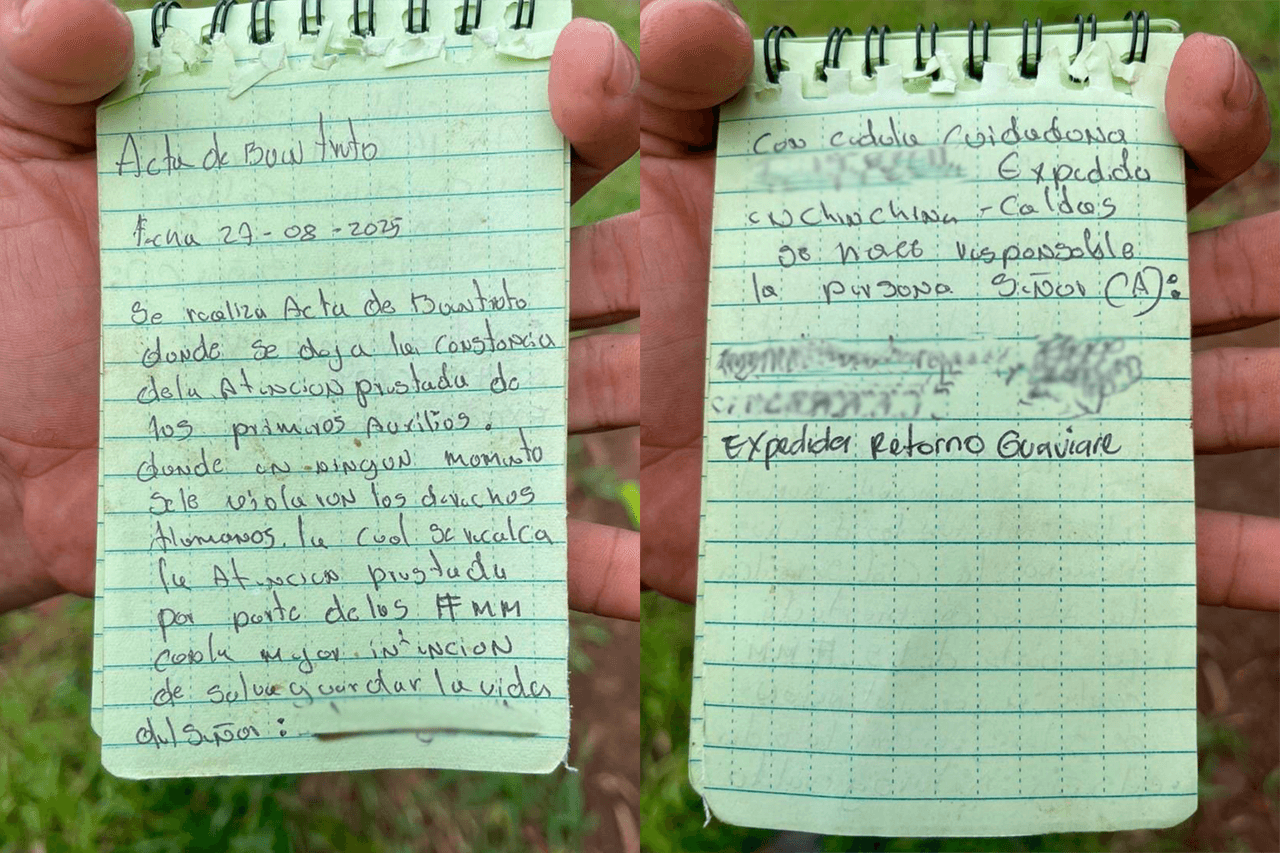 Acta de Buen trato
fecha 27-08-2025
Se realiza Acta de Buen trato
donde se deja la constancia
dela Atencion prestada de
los primeros Auxilios.
donde en ningun momento
sele violaron los derechos
Humanos, la cual se recalca
la Atencion prestada
por parte delos FFMM
conla mayor intencion
de salvaguardar la vida
del señor:
Con cedula Cuidadana
Expedida
en Chinchina - Caldas
se hace responsable
la persona Señor (A):
Expedida Retorno Guaviare